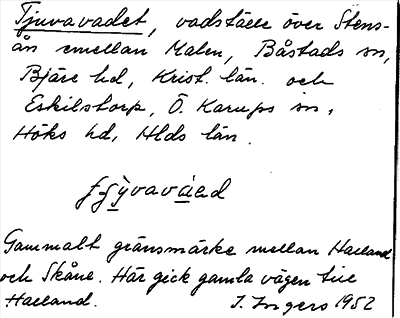 Tjuvavadet, vadställe över Stens-
ån emellan Malen, Båstads sn,
Bjäre hd, Krist. län. och
Eskilstorp, Ö. Karups sn,
Höks hd, Hlds län.
Gammalt gränsmärke mellan Halland
och Skåne. Här gick gamla vägen till
Halland. J. Ingers 1952